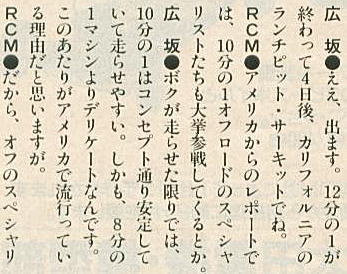 広 坂●ええ、出ます。12分の1が
終わって4日後、カリフォルニアの
ランチピット・サーキットでね。
RCM●アメリカからのレポートで
は、10分の1オフロードのスペシャ
リストたちも大挙参戦してくるとか。
広 坂●ボクが走らせた限りでは、
10分の1はコンセプト通り安定して
いて走らせやすい。しかも、8分の
1マシンよりデリケートなんです。
このあたりがアメリカで流行ってい
る理由だと思いますが。
RCM●だから、オフのスペシャリ